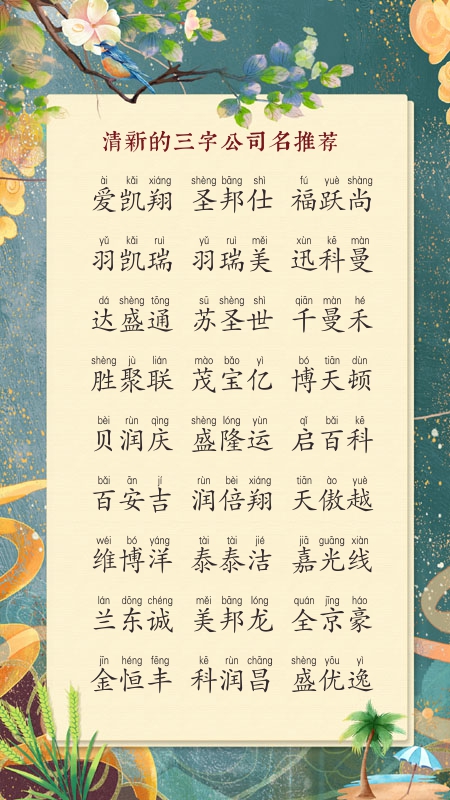 清新的三字公司名推荐
ài kǎi xiáng shèng bāng shì fú yuè shàng
爱凯翔 圣邦仕 福跃尚
yǔ kǎi ruì yǔ ruì měi xùn kē màn
羽凯瑞 羽瑞美 迅科曼
dá shèng tōng sū shèng shì qiān màn hé
达盛通 苏圣世 千曼禾
shèng jù lián mào bǎo yì bó tiān dùn
胜聚联 茂宝亿 博天顿
bèi rùn qìng shèng lóng yùn qǐ bǎi kē
贝润庆 盛隆运 启百科
bǎi ān jí rùn bèi xiáng tiān ào yuè
百安吉 润倍翔 天傲越
wéi bó yáng tài tài jié jiā guāng xiàn
维博洋 泰泰洁 嘉光线
lán dōng chéng měi bāng lóng quán jīng háo
兰东诚 美邦龙 全京豪
jīn héng fēng kē rùn chāng shèng yōu yì
金恒丰 科润昌 盛优逸